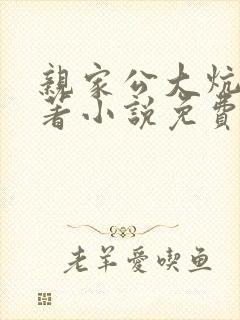 親家公大炕
著小說免費
老羊愛喫鱼